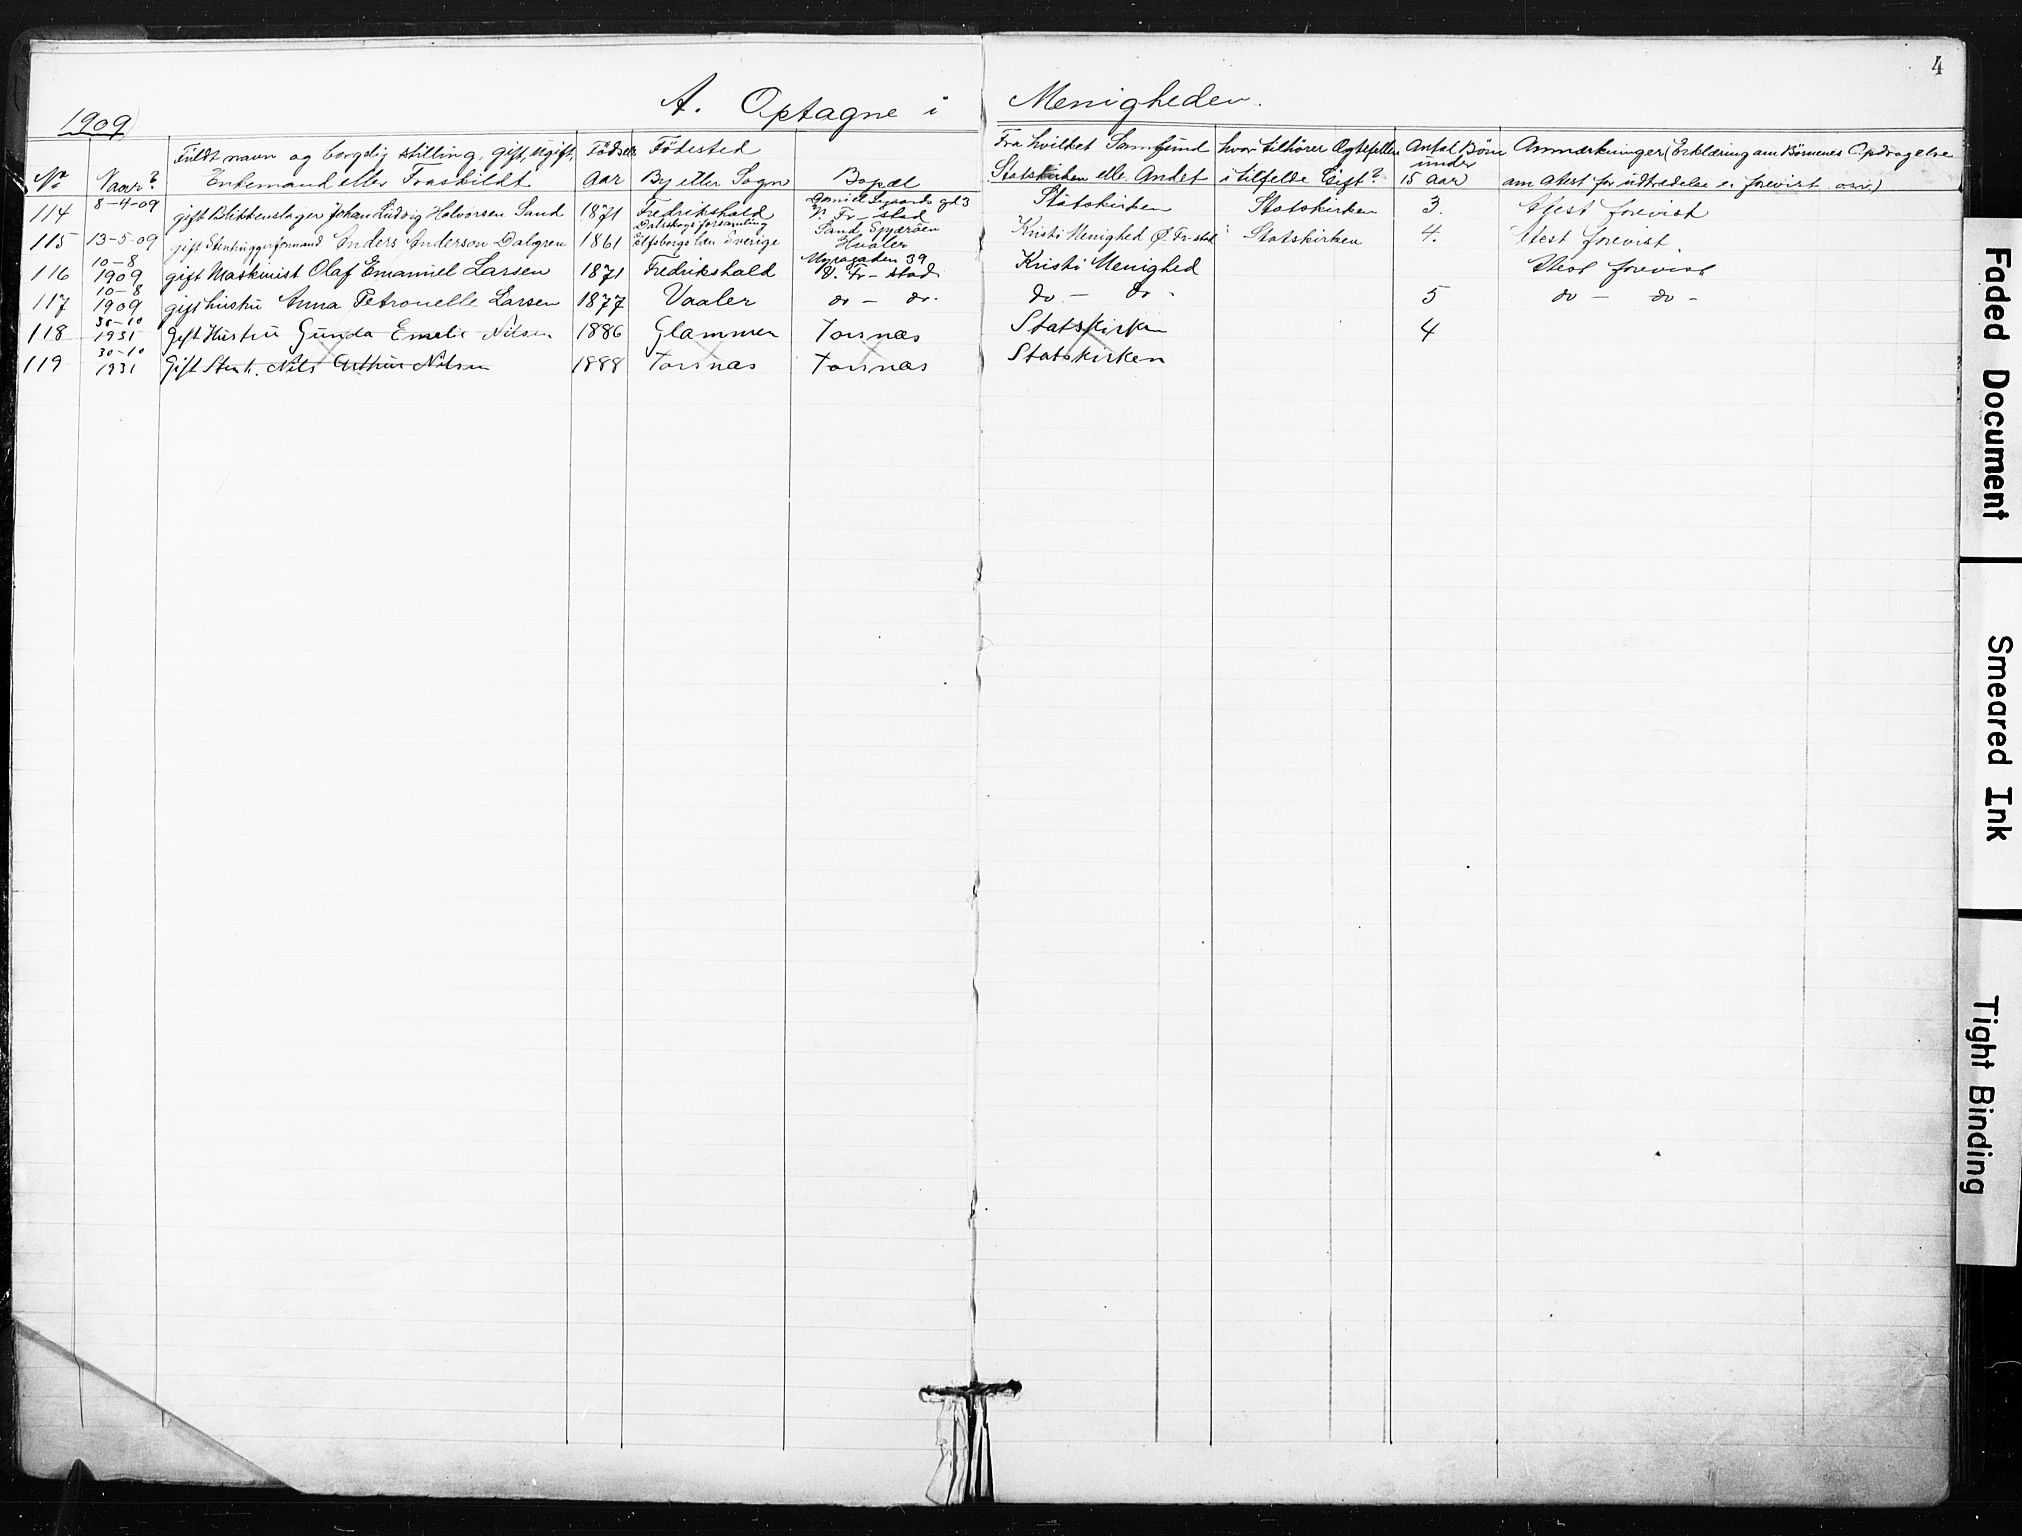 4
A. Optagne i Menigheden.
1909
Nr. Naar? Fuldt navn og borgelig stilling, gift, ugift, Enkemand eller Fraskildt Fødsels Aar Fødested By eller Sogn Bopæl Fra hvilket Samfund Statskirken elle. Andet hvor tilhører Ægtefellen i tilfelde Gift? Antal Børn under 15 Aar Anmærkninger (Erklæring om Børnenes Opdragelse om Atest for udtrædelse er forevist osv.)
114 8-4-09 gift Blikkenslager Johan Ludvig Halvorsen Sand 1871 Fredrikshald Daniel gd 3 V. Fr-stad Statskirken Statskirken 3. Atest forevist
115 13-5-09 gift Stenhuggerformand Anders Anderson Dalgren 1861 Dalskogs forsamling Elfsborgs len Sverige Sand Spjærøen Hvaler Kristi Menighed Ø. Fr-stad Statskirken 4. Atest forevist.
116 10-8 1909 gift Maskinist Olaf Emanuel Larsen 1871 Fredrikshald Myragaden 39 V. Fr-stad Kristi Menighed Atest forevist
117 10-8 1909 gift hustru Anna Petronelle Larsen 1877 Vaaler do - do. do - do - 5 do - do -
118 30-10 1931 Gift Hustru Gunda Emelie Nilsen 1886 Glemmen Torsnæs Statskirken 4
119 30-10 1931 Gift Stenh. Nils Arthur Nilsen 1888 Torsnæs Torsnæs Statskirken
Faded Document
Smeared Ink
Tight Binding